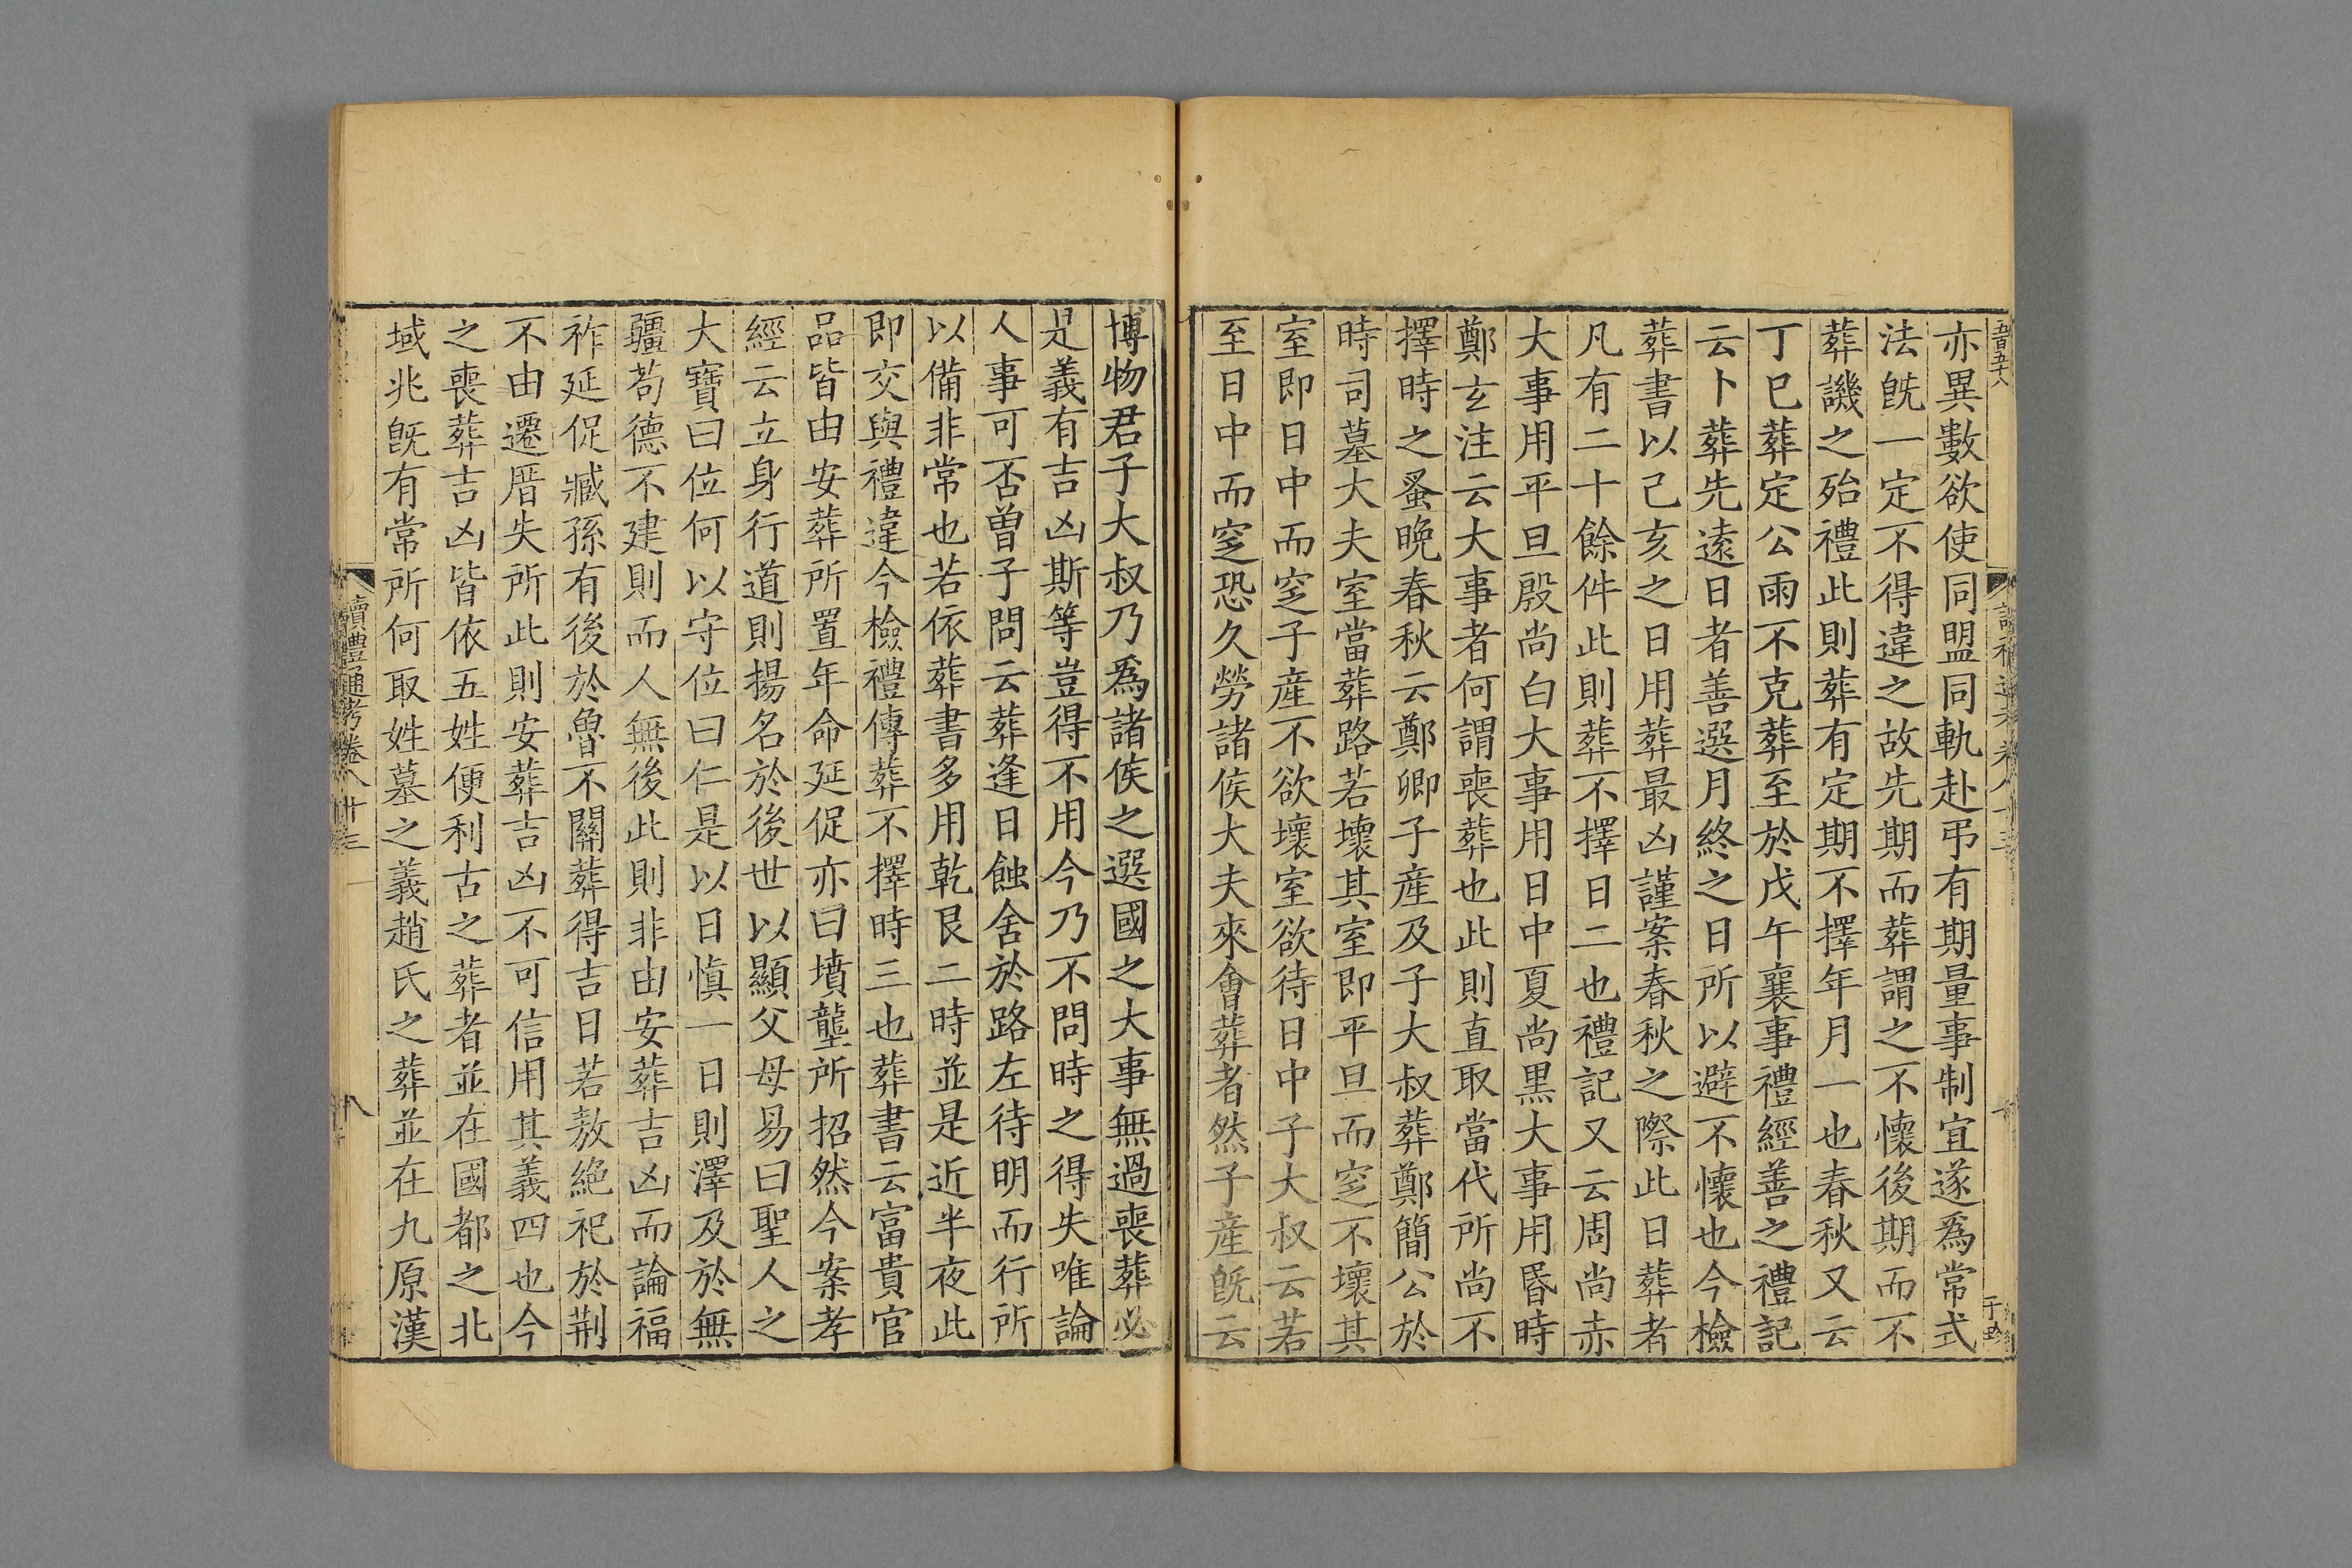 亦異數欲使同盟同軌赴弔有期量事制宜遂爲常式
法旣一定不得違之故先期而葬謂之不懷後期而不
葬譏之殆禮此則葬有定期不擇年月一也春秋又云
丁巳葬定公雨不克葬至於戊午襄事禮經善之禮記
云卜葬先遠日者善選月終之日所以避不懷也今檢
葬書以己亥之日用葬最凶謹案春秋之際此日葬者
凡有二十餘件此則葬不擇日二也禮記又云周尚赤
大事用平旦殷尚白大事用日中夏尚黑大事用昏時
鄭玄注云大事者何謂喪葬也此則直取當代所尚不
擇時之蚤晚春秋云鄭卿子産及子大叔葬鄭簡公於
時司墓大夫室當葬路若壞其室即平旦而窆不壞其
室即日中而窆子産不欲壞室欲待日中子大叔云若
至日中而窆恐久勞諸侯大夫來會葬者然子産旣云
博物君子大叔乃爲諸侯之選國之大事無過喪葬必
是義有吉凶斯等豈得不用今乃不問時之得失唯論
人事可否曾子問云葬逢日蝕舍於路左待明而行所
以備非常也若依葬書多用乾艮二時並是近半夜此
即交與禮違今檢禮傳葬不擇時三也葬書云富貴官
品皆由安葬所置年命延促亦曰墳壟所招然今案孝
經云立身行道則揚名於後世以顯父母易曰聖人之
大寶曰位何以守位曰仁是以日慎一日則澤及於無
疆苟德不建則而人無後此則非由安葬吉凶而論福
祚延促臧孫有後於魯不關葬得吉日若敖絕祀於荆
不由遷厝失所此則安葬吉凶不可信用其義四也今
之喪葬吉凶皆依五姓便利古之葬者並在國都之北
域兆旣有常所何取姓墓之義趙氏之葬並在九原漢
讀禮通考卷八十三
八